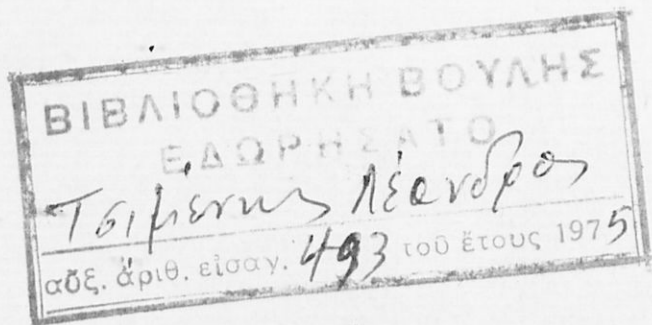 ΒΙΒΛΙΟΘΗΚΗ ΒΟΥΛΗΣ
ΕΔΩΡΗΣΑΤΟ
Τσιμένης Λέανδρος
αὔξ. ἀριθ. εἰσαγ. 493 τοῦ ἔτους 1975